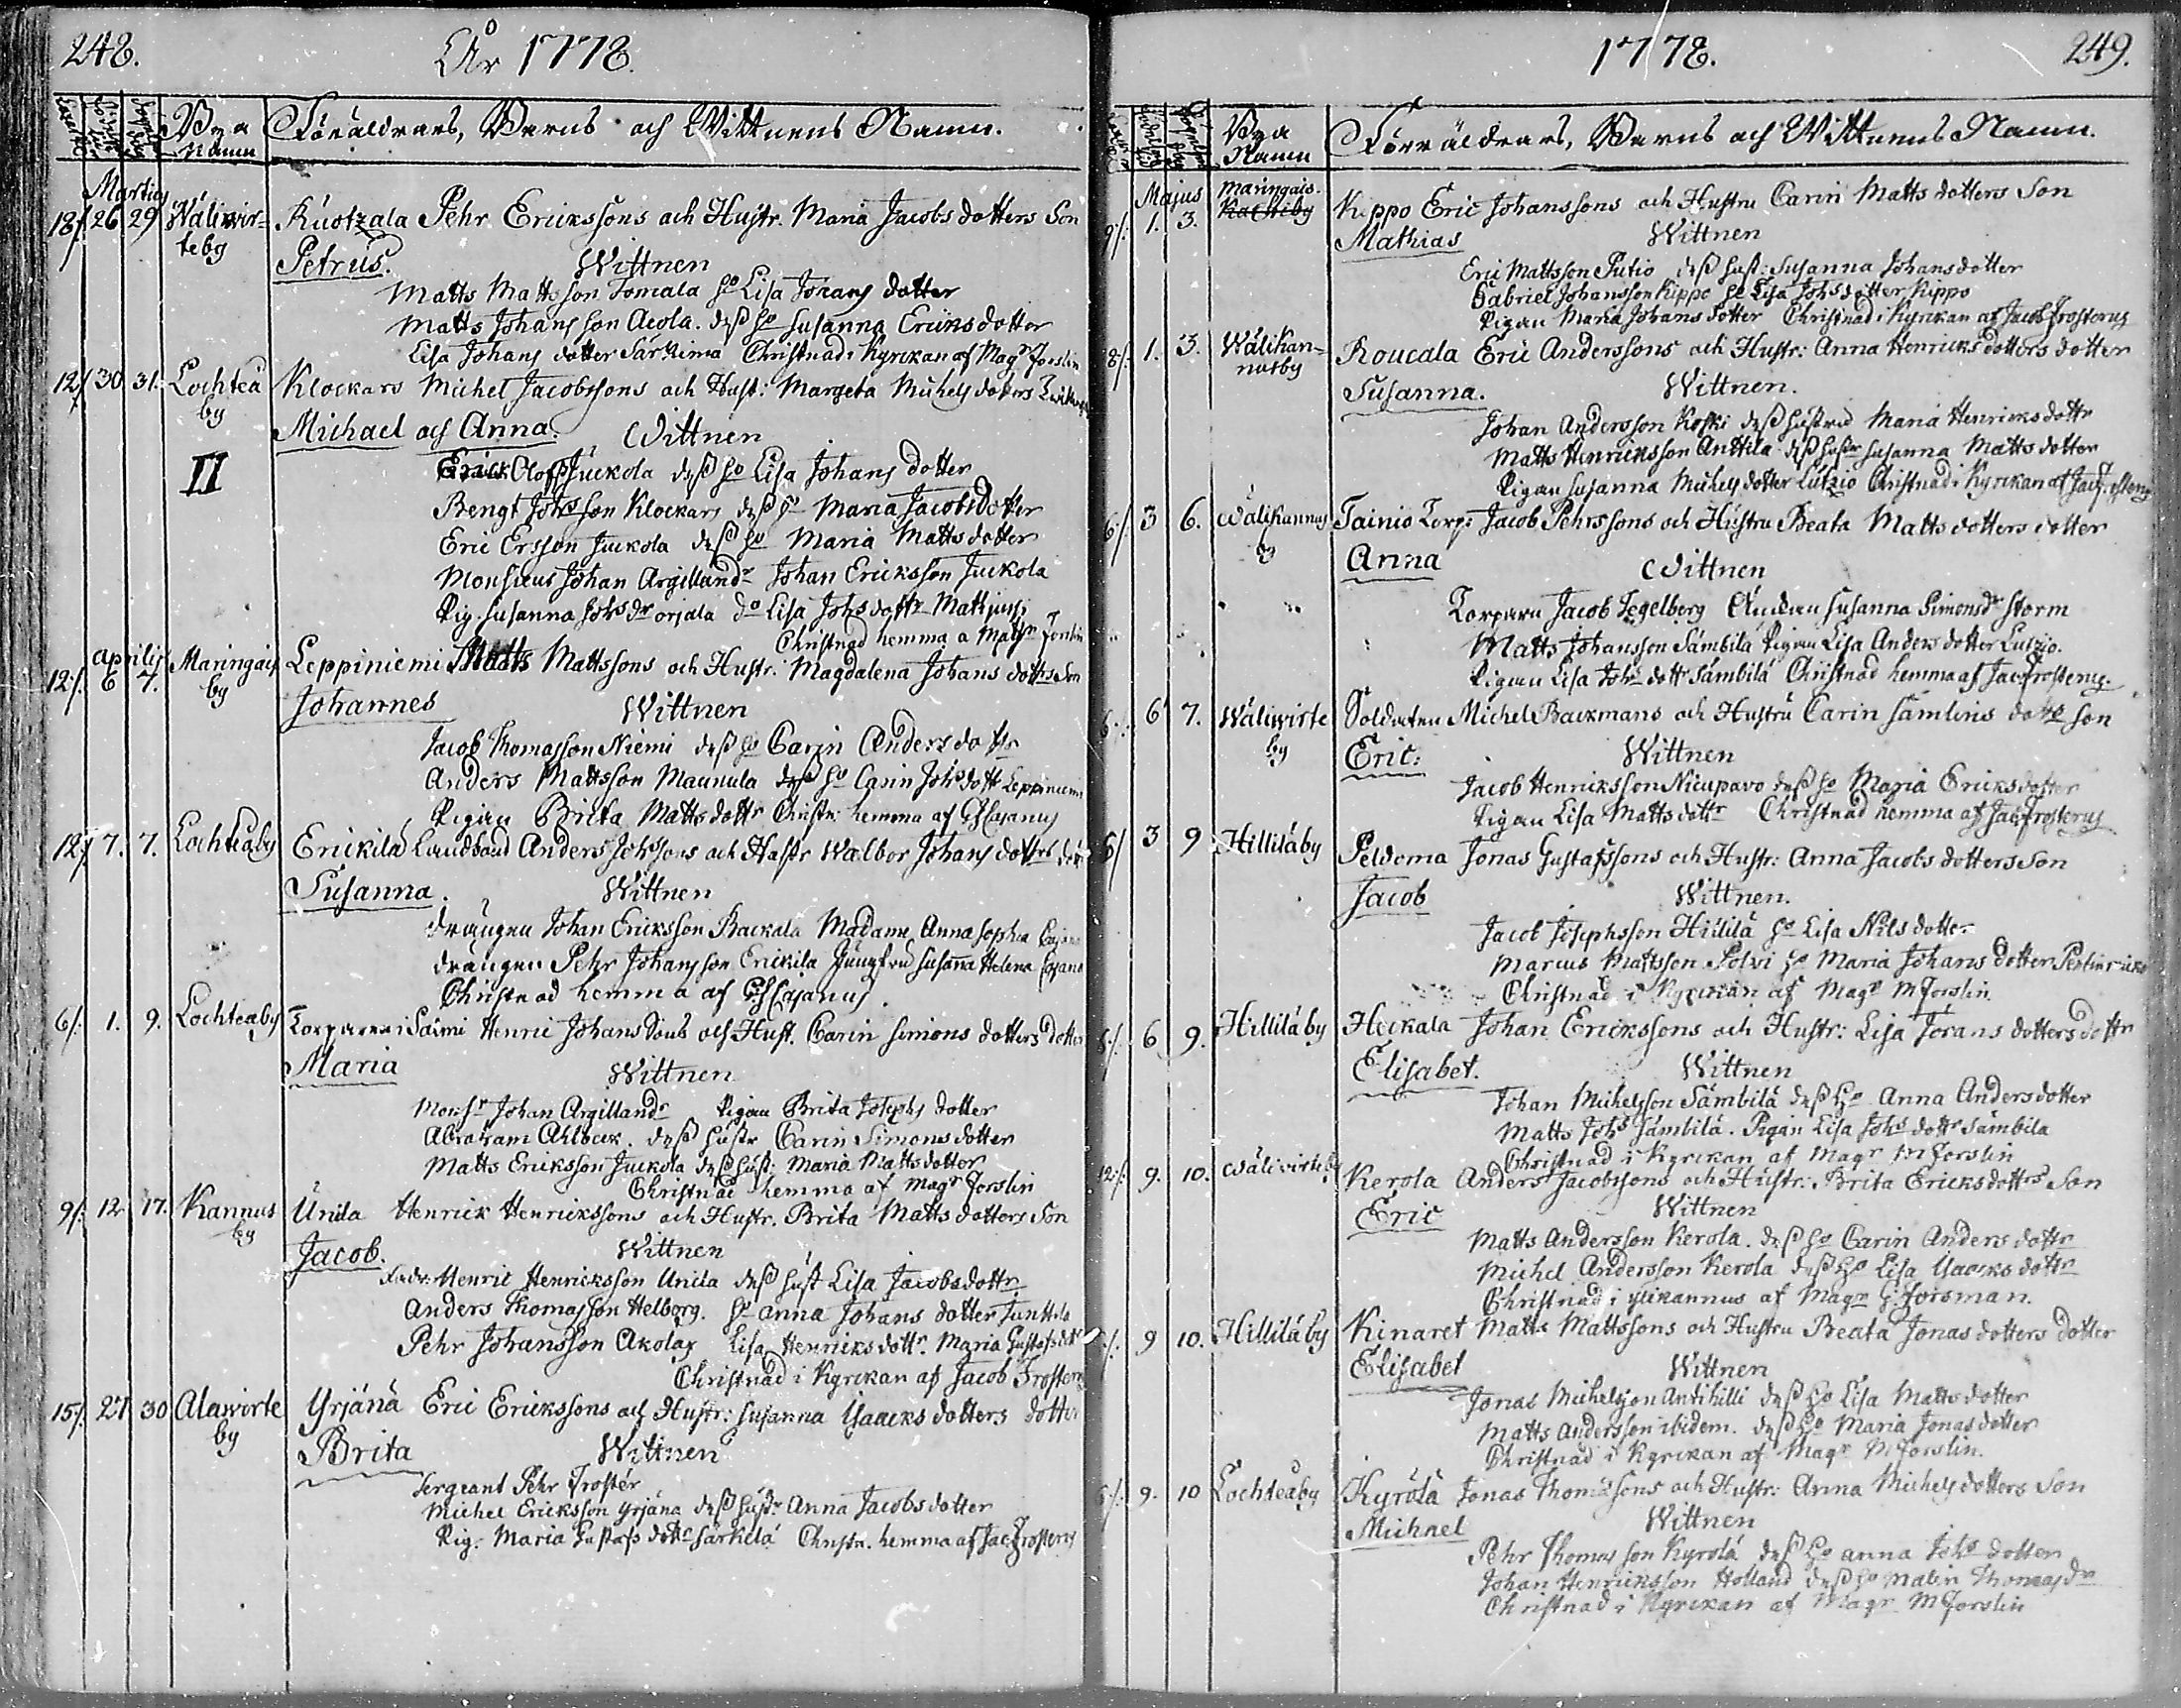 248.
År 1778.
Bya Namn
Föräldrars, Barns och Wittnens Namn.
Martius
18/. 26 29 Wäliwir=
teby
Kuotzala Pehr Erickssons och Hustr. Maria Jacobs dotters Son
Petrus. Wittnen
Matts Mattsson Tomala ho Lisa Jörans dotter
Matts Johansson Aeola. dess ho Susanna Ericksdotter
Lisa Johans dotter Särkima Christnad i Kyrckan af Magr Forslin
12/. 30 31. Lochteå
by
Klockars Michel Jacobssons och Hust: Margeta Michels doters
Michael och Anna. Wittnen
II
Erick Olofss Juckola dess ho Lisa Johans dotter
Bengt Johsson Klockars dess ho Maria Jacobs Dotter
Eric Ersson Juckola dess ho Maria Matts dotter
Monsieur Johan Argillandr Johan Ericksson Juckola
Pig. Susanna Johsdr orjala do Lisa Johs dottr Mattjussi
Christnad hemma a Magr Forslin
Aprilis
12/. 6 7. Maringais
by
Leppiniemi Matts Mattssons och Hustr. Magdalena Johans dottrs Son
Johannes Wittnen
Jacob Thomasson Niemi dess ho Carin Anders dottr
Anders Mattsson Maunula dess ho Carin Johs dottr Leppiniemi
Pigan Brita Matts dottr Christn: hemma af GH Cajanus
12/. 7. 7. Lochteåby
Erickilä Landbond Anders Johssons och Hustr Walbor Johans dottrs dott
Susanna. Wittnen
drängen Johan Ericksson Backala Madame Anna Sophia Cajana
drängen Pehr Johansson Erickila Jungfru Susanna Helena Cajana
Christnad hemma af GH Cajanus.
6/. 1. 9. Lochteåby
Torparen i Saimi Henric Johans Sons och Hust. Carin Simons dotters dotter
Maria Wittnen
Monsr Johan Argillandr Pigan Brita Josephs dotter
Abraham Ahlbeck. dess hustr Carin Simons dotter
Matts Ericksson Juckola dess hust: Maria Matts dotter
Christnad hemma af Magr Forslin
9/. 12 17. Kannus
by
Unila Henrick Henrickssons och Hustr. Brita Matts dotters Son
Jacob. Wittnen
Henric Henricksson Unila dess hust Lisa Jacobsdottr
Anders Thomasson Helborg. ho Anna Johans dotter Junttila
Pehr Johansson Akola Lisa Henricks dottr. Maria Gustafs dott
Christnad i Kyrckan af Jacob Frosterus
15/. 27 30 Alawirte
by
Yrjänä Eric Erickssons och Hustr: Susanna Isaacks dotters dotter
Brita Wittnen
Sergeant Pehr Frostér
Michel Ericksson Yrjäna dess hustr Anna Jacobs dotter
Pig: Maria Gustafs dottr Särkelä Christn. hemma af Jac: Frosterus
1778.
249.
Bya Namn
Föräldrars, Barns och Wittnens Namn.
Majus
9/. 1. 3. Maringais.
Kälwiby
Kippo Eric Johanssons och Hustru Carin Matts dotters Son
Mathias Wittnen
Eric Mattsson Putio dess hust: Susanna Johansdotter
Gabriel Johansson Kippo ho Lisa Johs dotter Kippo
Pigan Maria Johans dotter Christnad i Kyrckan af Jacob Frosterus
8/. 1. 3. Wälikan=
nusby
Roucala Eric Anderssons och Hustr: Anna Henricks dotters dotter
Susanna. Wittnen.
Johan Andersson Koski dess hustru Maria Henricks dottr
Matts Henricksson Anttila dess hustr Susanna Matts dotter
Pigan Susanna Michels dotter Lutzio Christnad i Kyrckan af Jac: Frosterus
6/. 3 6. Wälikannus
by
Tainio Torp: Jacob Pehrssons och Hustru Beata Matts dotters dotter
Anna Wittnen
Torparn Jacob Tegelberg Änckan Susanna Simonsdr Storm
Matts Johansson Sämbilä Pigan Lisa Anders dotter Lutzio.
Pigan Lisa Johs dottr Sämbilä Christnad hemma af Jac: Frosterus.
6/. 6 7. Wäliwirte
by
Soldaten Michel Backmans och Hustru Carin Samlins dottrs son
Eric: Wittnen
Jacob Henricksson Nicupavo dess ho Maria Ericksdotter
Pigan Lisa Matts dottr Christnad hemma af Jac: Frosterus
6/. 3 9 Hilliläby
Peldoma Jonas Gustafssons och Hustr: Anna Jacobs dotters Son
Jacob Wittnen.
Jacob Josephsson Hillilä ho Lisa Nils dotter
Marcus Mattsson Polvi ho Maria Johans dotter
Christnad i Kyrckan af Magr M Forslin.
8/. 6 9. Hilliläby
Heckala Johan Erickssons och Hustr: Lisa Jörans dotters dottr
Elisabet. Wittnen
Johan Michelsson Sämbilä dess ho Anna Anders dotter
Matts Johs Sämbilä. Pigan Lisa Johs dottr Sämbila
Christnad i Kyrckan af Magr M Forslin
12/. 9. 10. Wäliwirteby
Kerola Anders Jacobssons och Hustr: Brita Ericksdottrs Son
Eric Wittnen
Matts Andersson Kerola. dess ho Carin Anders dottr
Michel Andersson Kerola dess ho Lisa Isaacks dottr
Christnad i Ylikannus af Magr G: Forsman.
9 10. Hilliläby
Kinaret Matts Mattssons och Hustru Beata Jonas dotters dotter
Elisabet Wittnen
Jonas Michelsson Antihilli dess ho Lisa Matts dotter
Matts Andersson ibidem. dess ho Maria Jonas dotter
Christnad i Kyrckan af Magr M Forslin.
9. 10 Lochteåby
Kyrölä Jonas Thomassons och Hustr: Anna Michels dotters Son
Michael Wittnen
Pehr Thomasson Kyrölä dess ho Anna Johs dotter
Johan Henricksson Holland dess ho Malin Thomas dr
Christnad i Kyrckan af Magr M Forslin